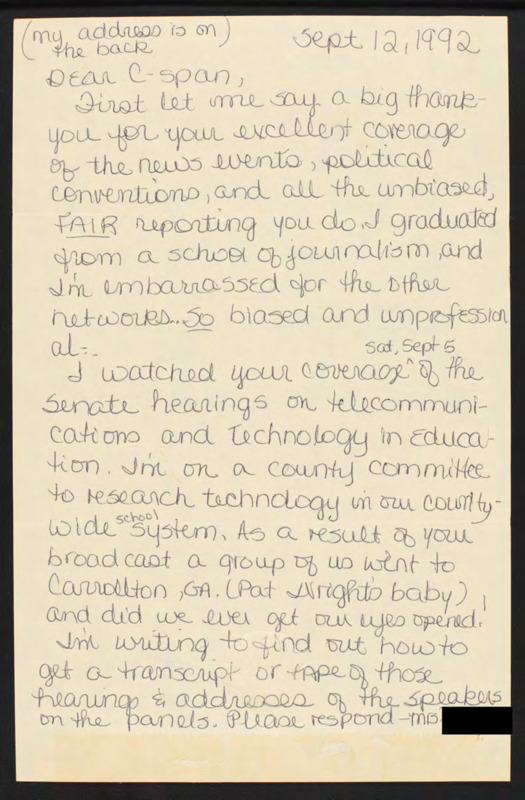 (my address is on)
the back
Sept 12, 1992
Dear C-span,
First let me say a big thank-
you for your excellent coverage
of the news events, political
conventions, and all the unbiased,
FAIR reporting you do. I graduated
from a school of journalism, and
I'm embarrassed for the other
networks.. So biased and unprofession
al-.
Sat, Sept 5
I watched your coverage ^ of the
Senate hearings on telecommuni-
cations and Technology in Educa-
tion. I'm on a county committee
to research technology in our county-
wide school system. As a result of your
broadcast a group of us went to
Carrollton, GA. (Pat Wright's baby)
and did we ever get our eyes opened!
I'm writing to find out how to
get a transcript or tape of those
hearings & addresses of the speakers
on the panels. Please respond - Mrs.